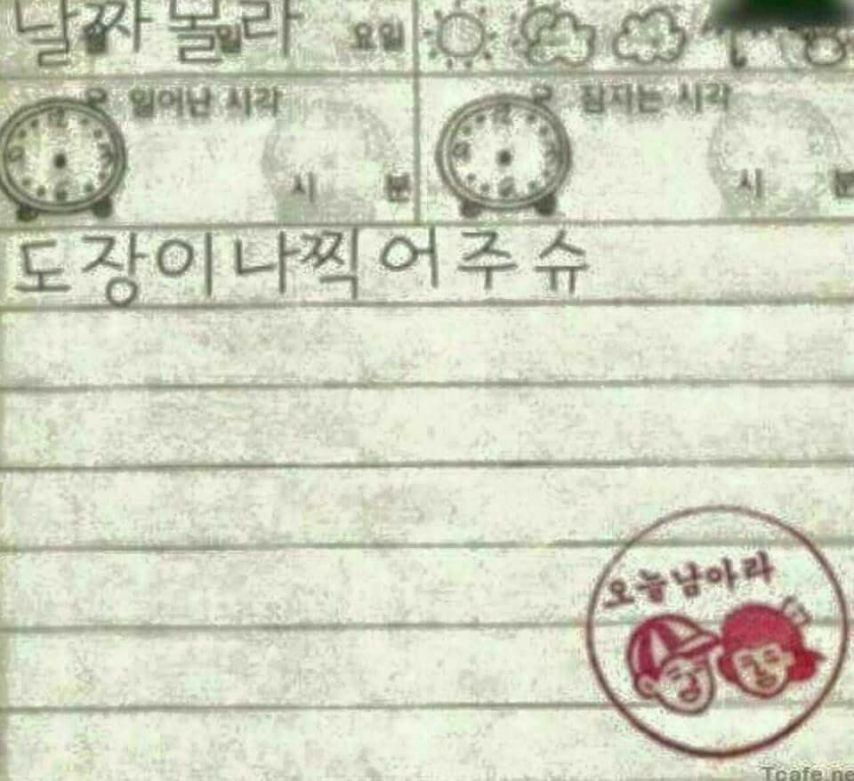 날짜 몰라 요일
일어난 시각 잠자는 시각
시 분 시 분
도장이나 찍어주슈
오늘남아라
Tcafe.ne